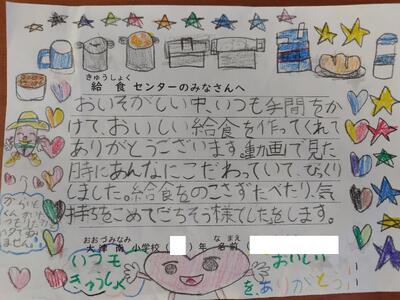 きゅうしょく
給食センターのみなさんへ
おいそがしい中、いつも手間をか
けて、おいしい給食を作ってくれて
ありがとうございます。動画で見た
時にあんなにこだわっていて、びっくり
しました。給食をのこさずたべたり、気
持ちをこめてごちそう様でしたをします。
おおづみなみ
なまえ
大津南小学校( )年 名前( )
いつも
きゅうしょく
おいしい
を、ありがとう!!